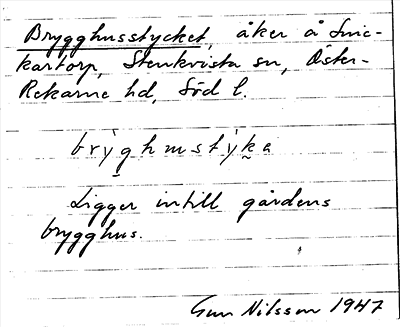 Brygghusstycket, åker å Snic-
kartorp, Stenkvista sn, Öster-
Rekarne hd, Söd l.
Ligger intill gårdens
brygghus.
Gun Nilsson 1947